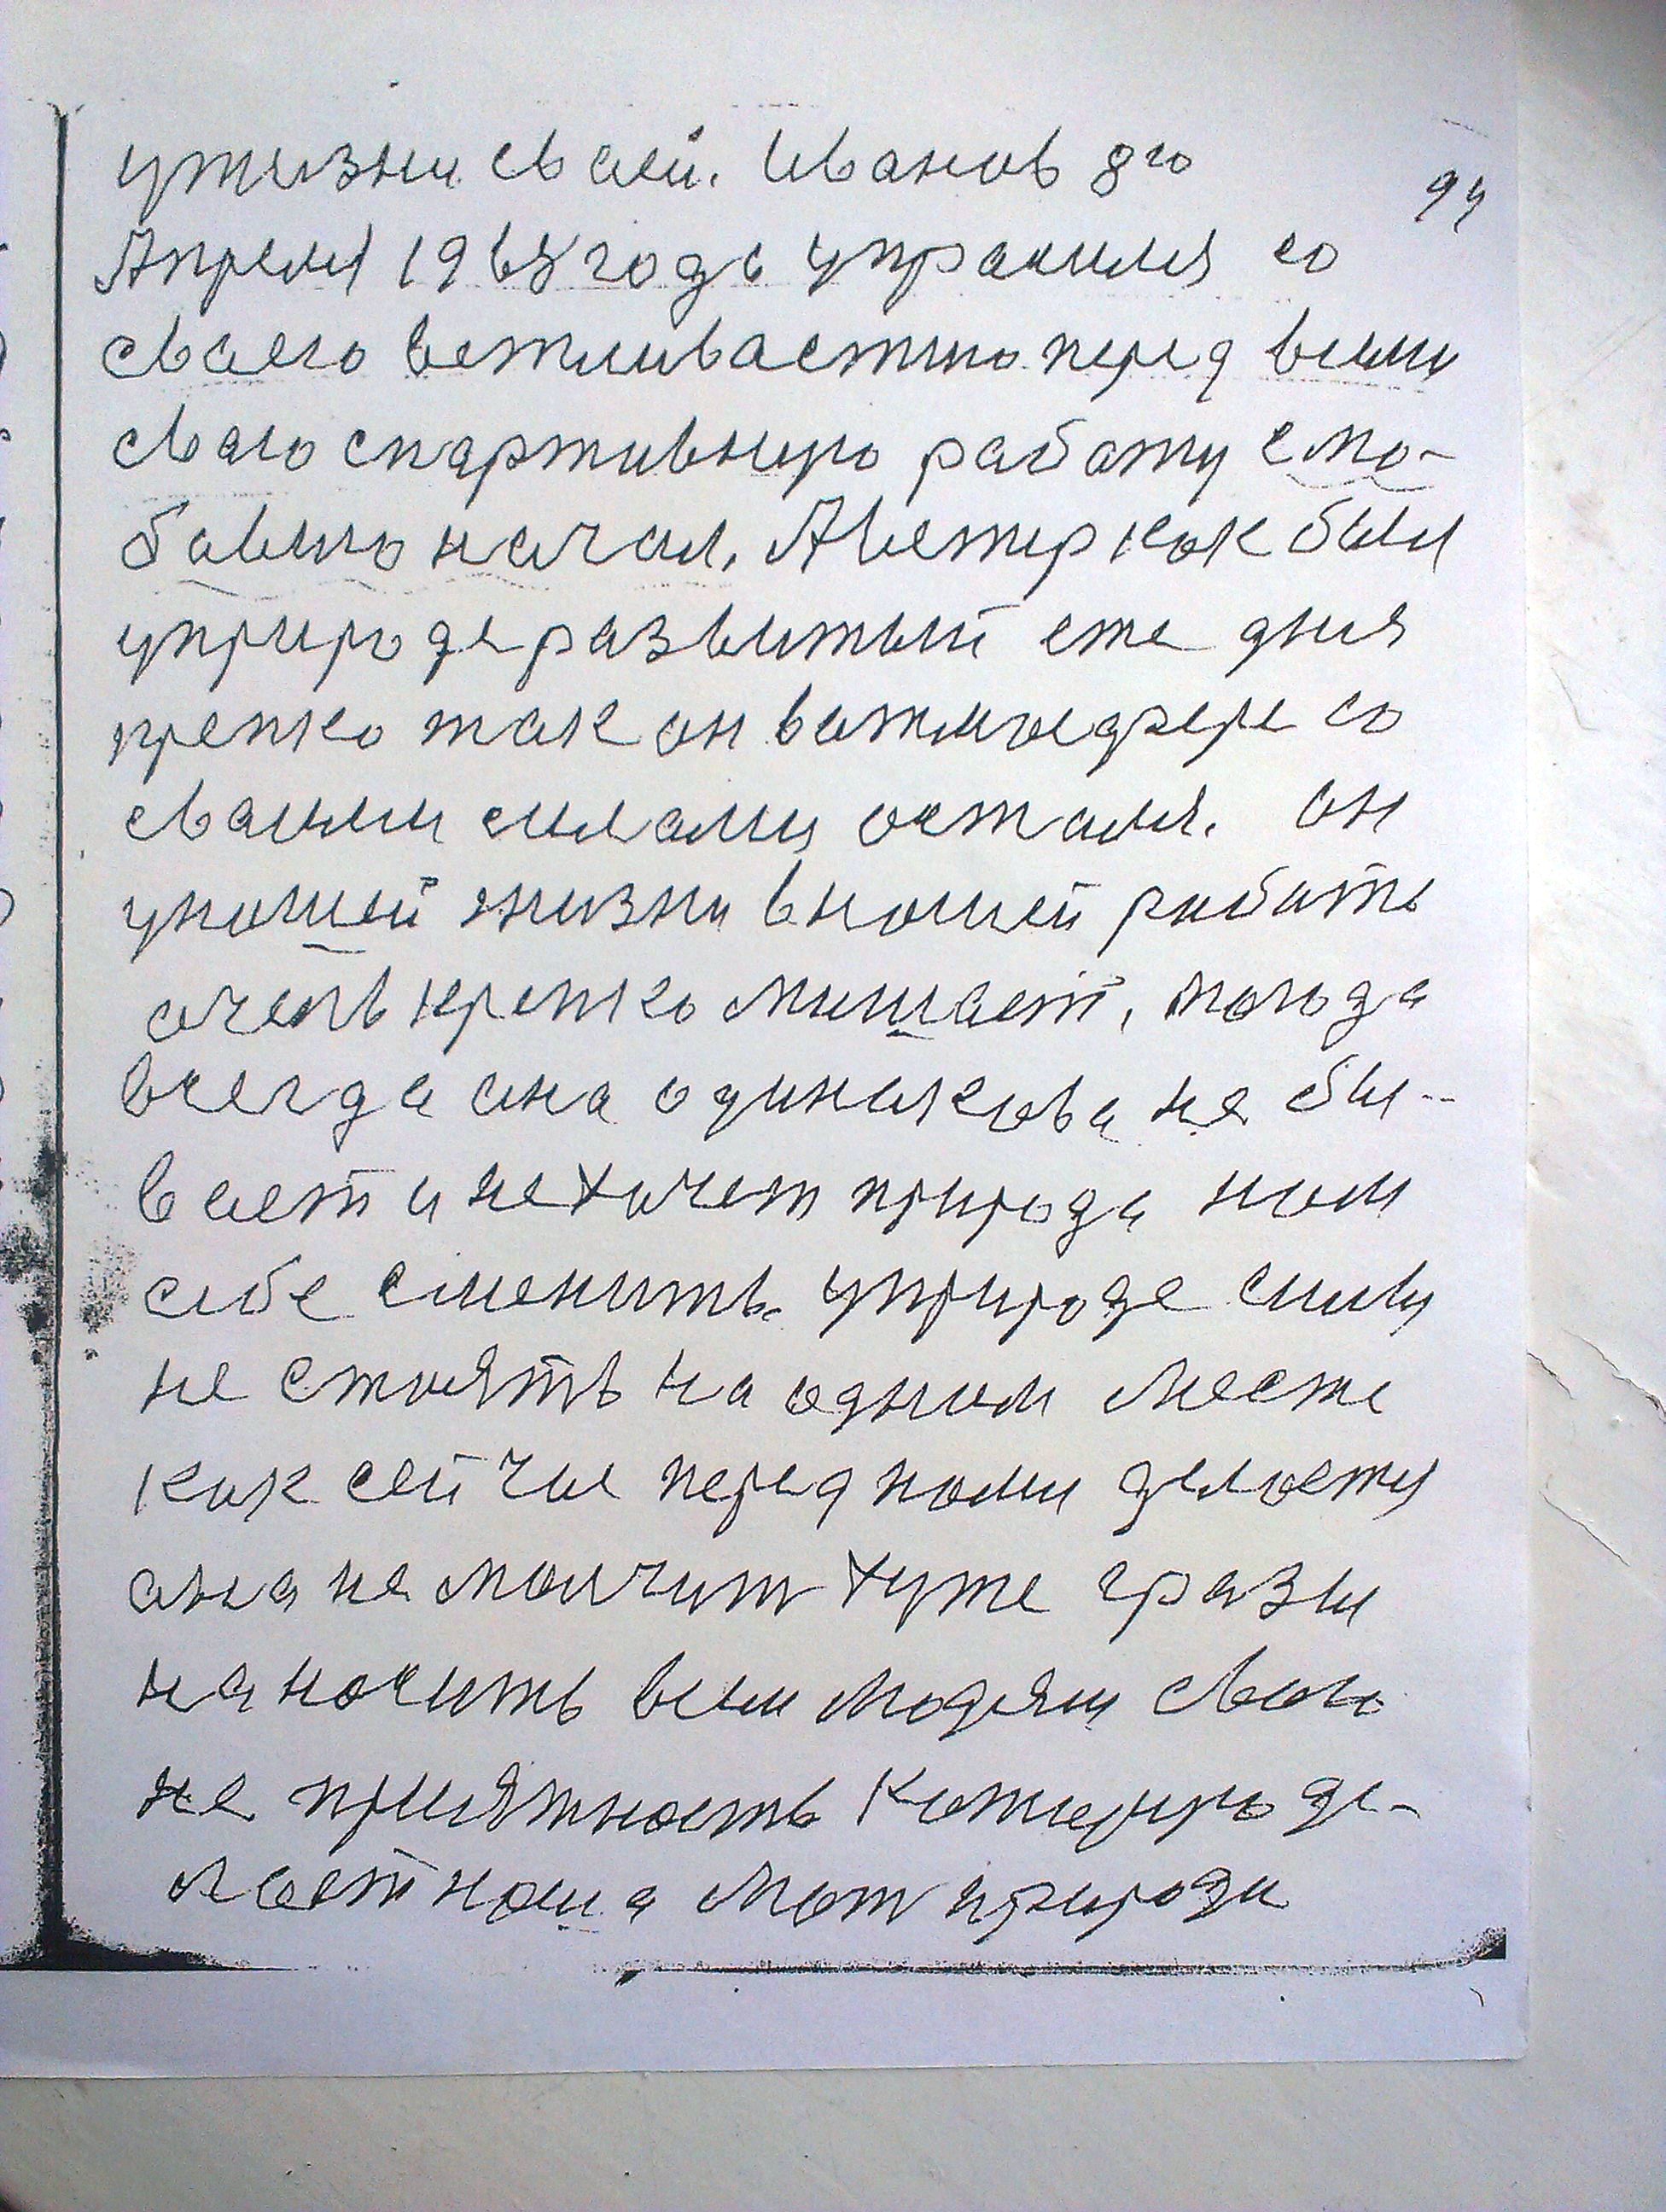 ужизни сваей. Иванов 8го
94
Апреля 1968 года упрасился со
сваего вежливастию перед всими
сваю спартивную работу с лю-
бовию начал. Аветер как был
уприроде развитый еже дния
крепко так он ватмосфере со
сваими силами остался. он
унашей жизни внашей работе
очень крепко мишает, погода
всегда она одинакова не бы-
вает и не хочет природа нам
себе сменить. уприроде силы
не стоять на одном месте
как сей час перед нами делоется
она не молчит хуже гразы
на носить всим людям сваю
не приятность Которую де-
лает наша мат природа